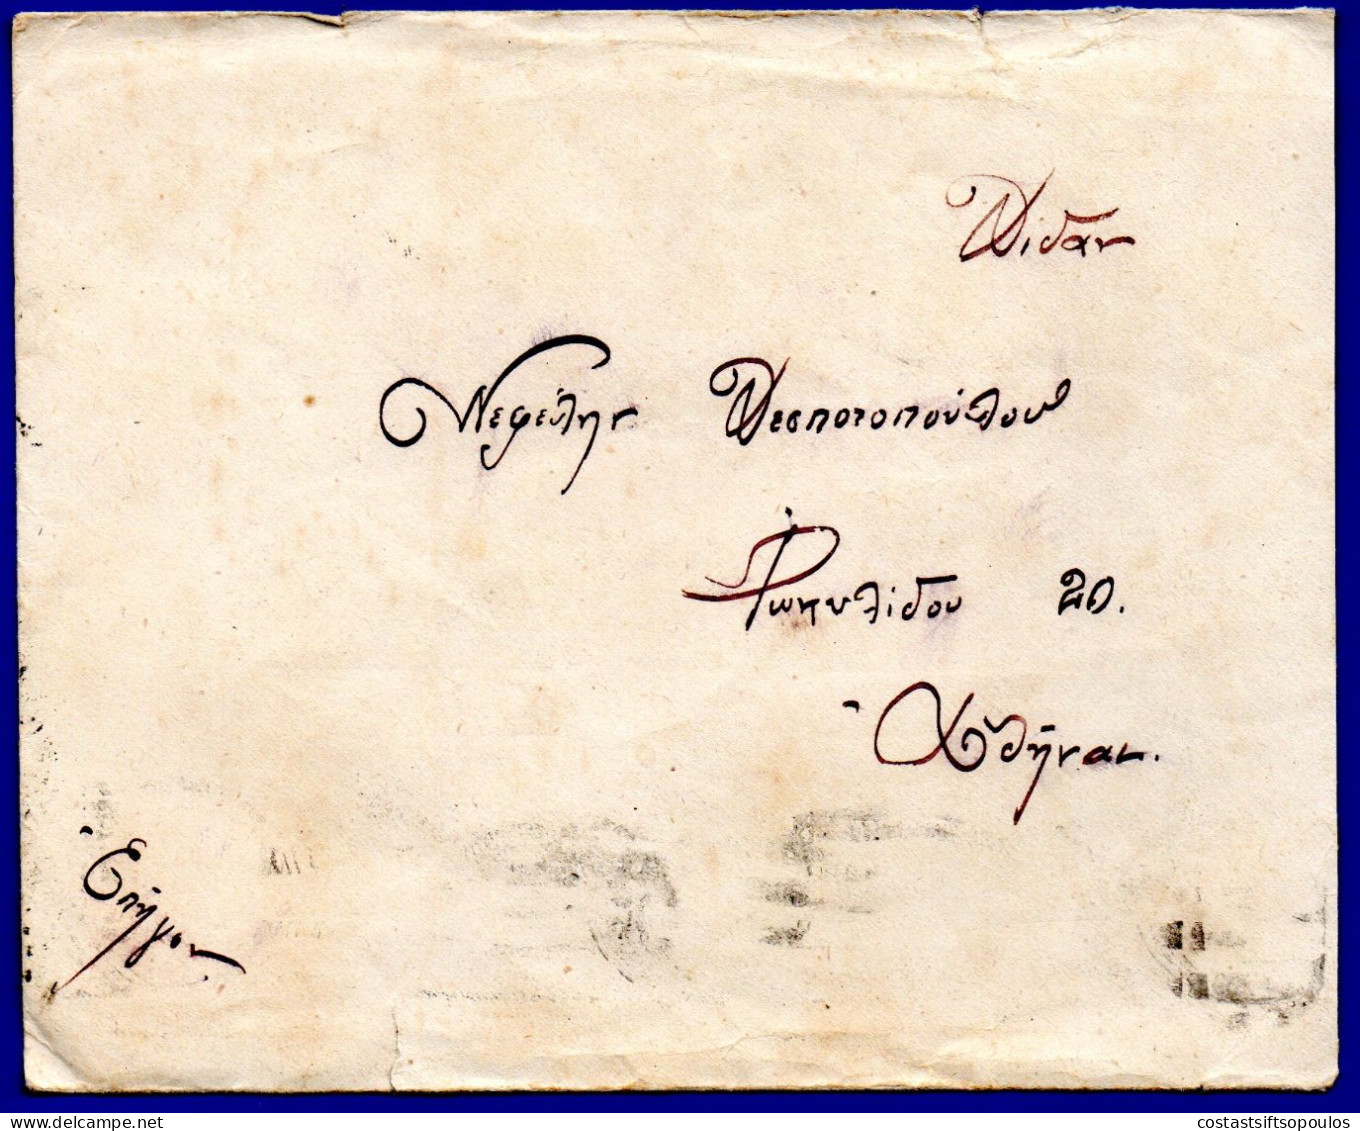 Δίδαν
Νεφέλην Δεσποτοπούλου
Φωκυλίδου 20.
Ἀθήνας.
Ἐπῆγον.
www.delcampe.net
costastsiftsopoulos